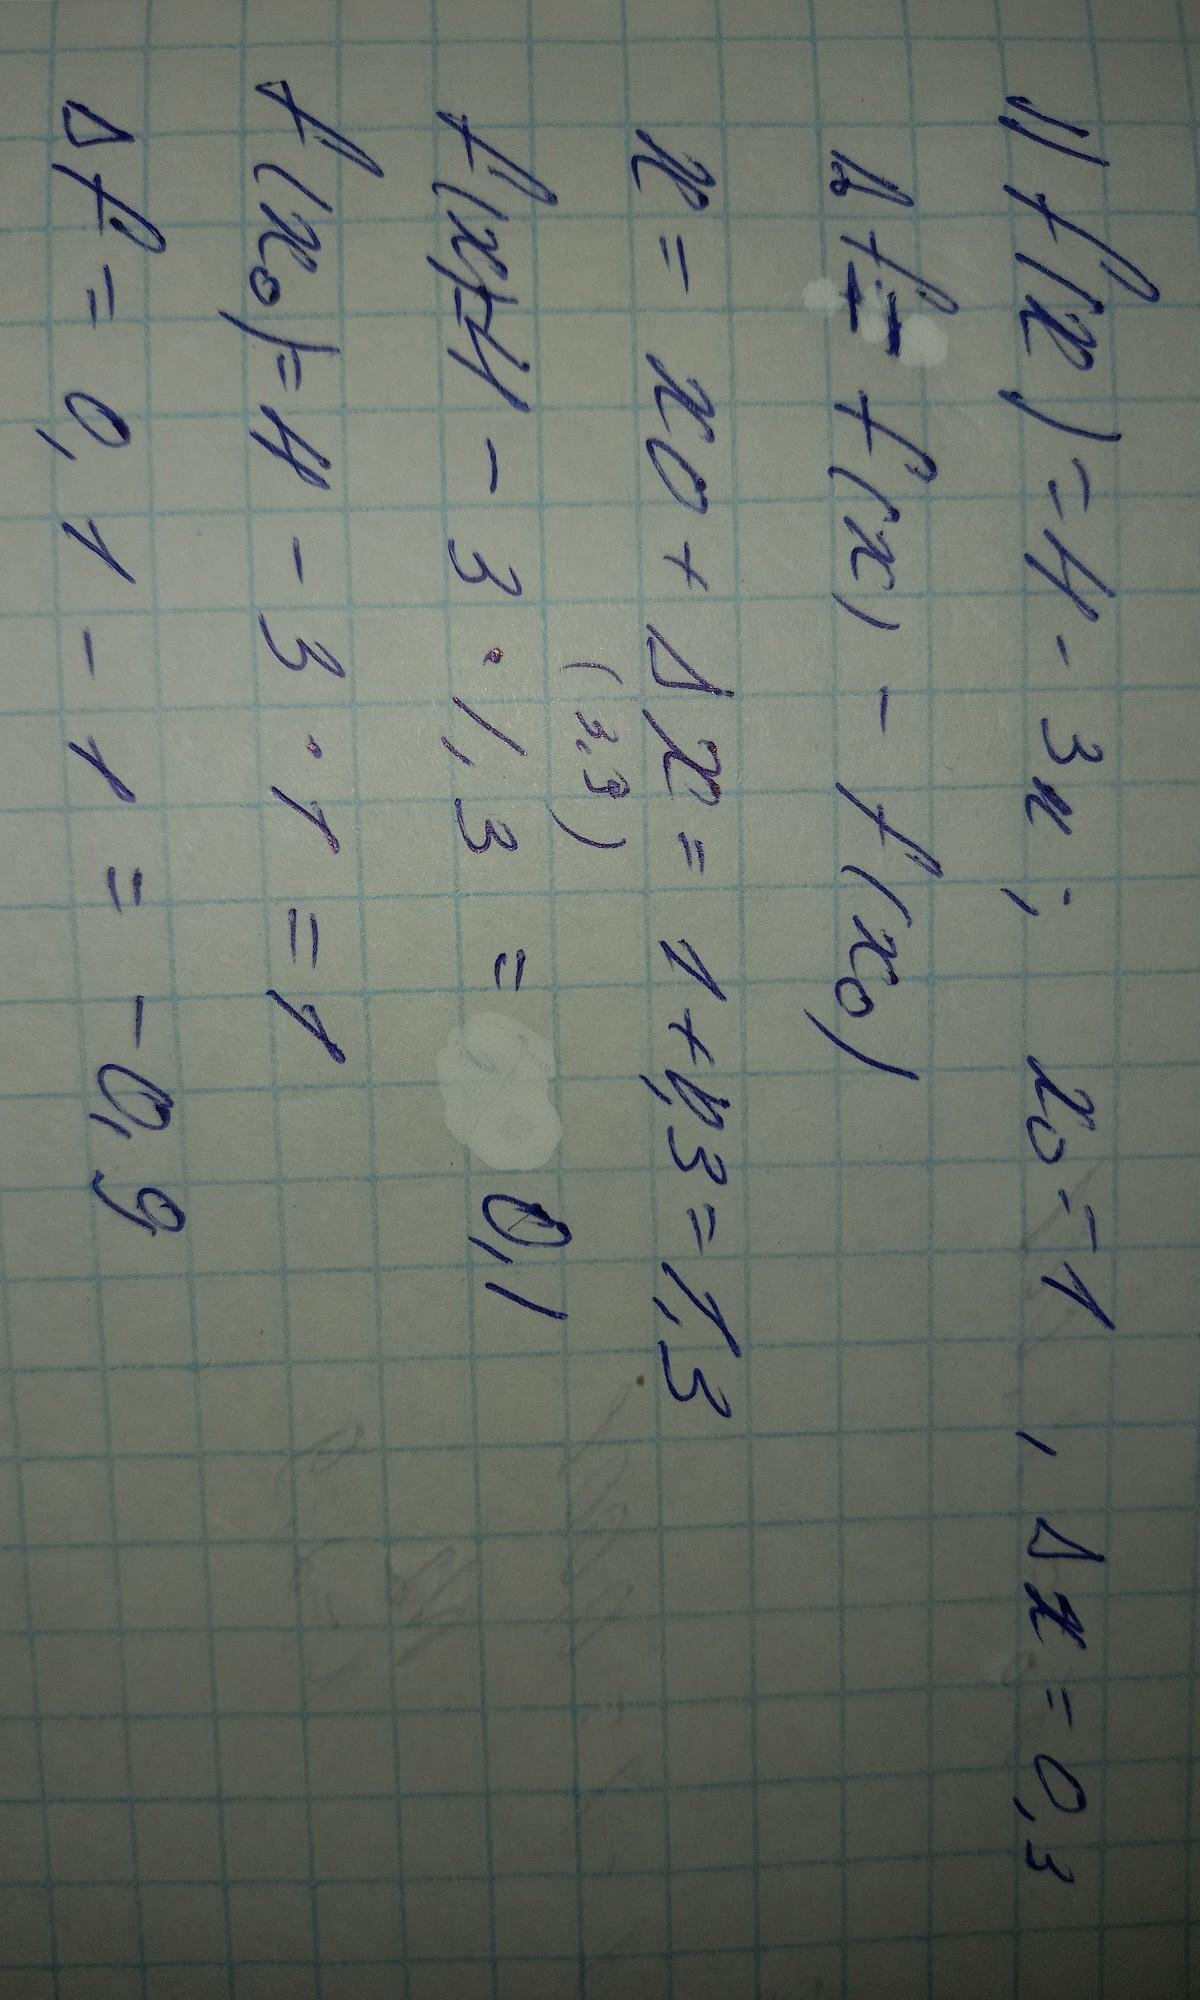 1) f(x) = 4 - 3x ; x0 = 1 , Δx = 0,3
Δf = f(x) - f(x₀)
x = x0 + Δx = 1 + 0,3 = 1,3
(3,9)
f(x) = 4 - 3 · 1,3 = 0,1
f(x₀) = 4 - 3 · 1 = 1
Δf = 0,1 - 1 = -0,9